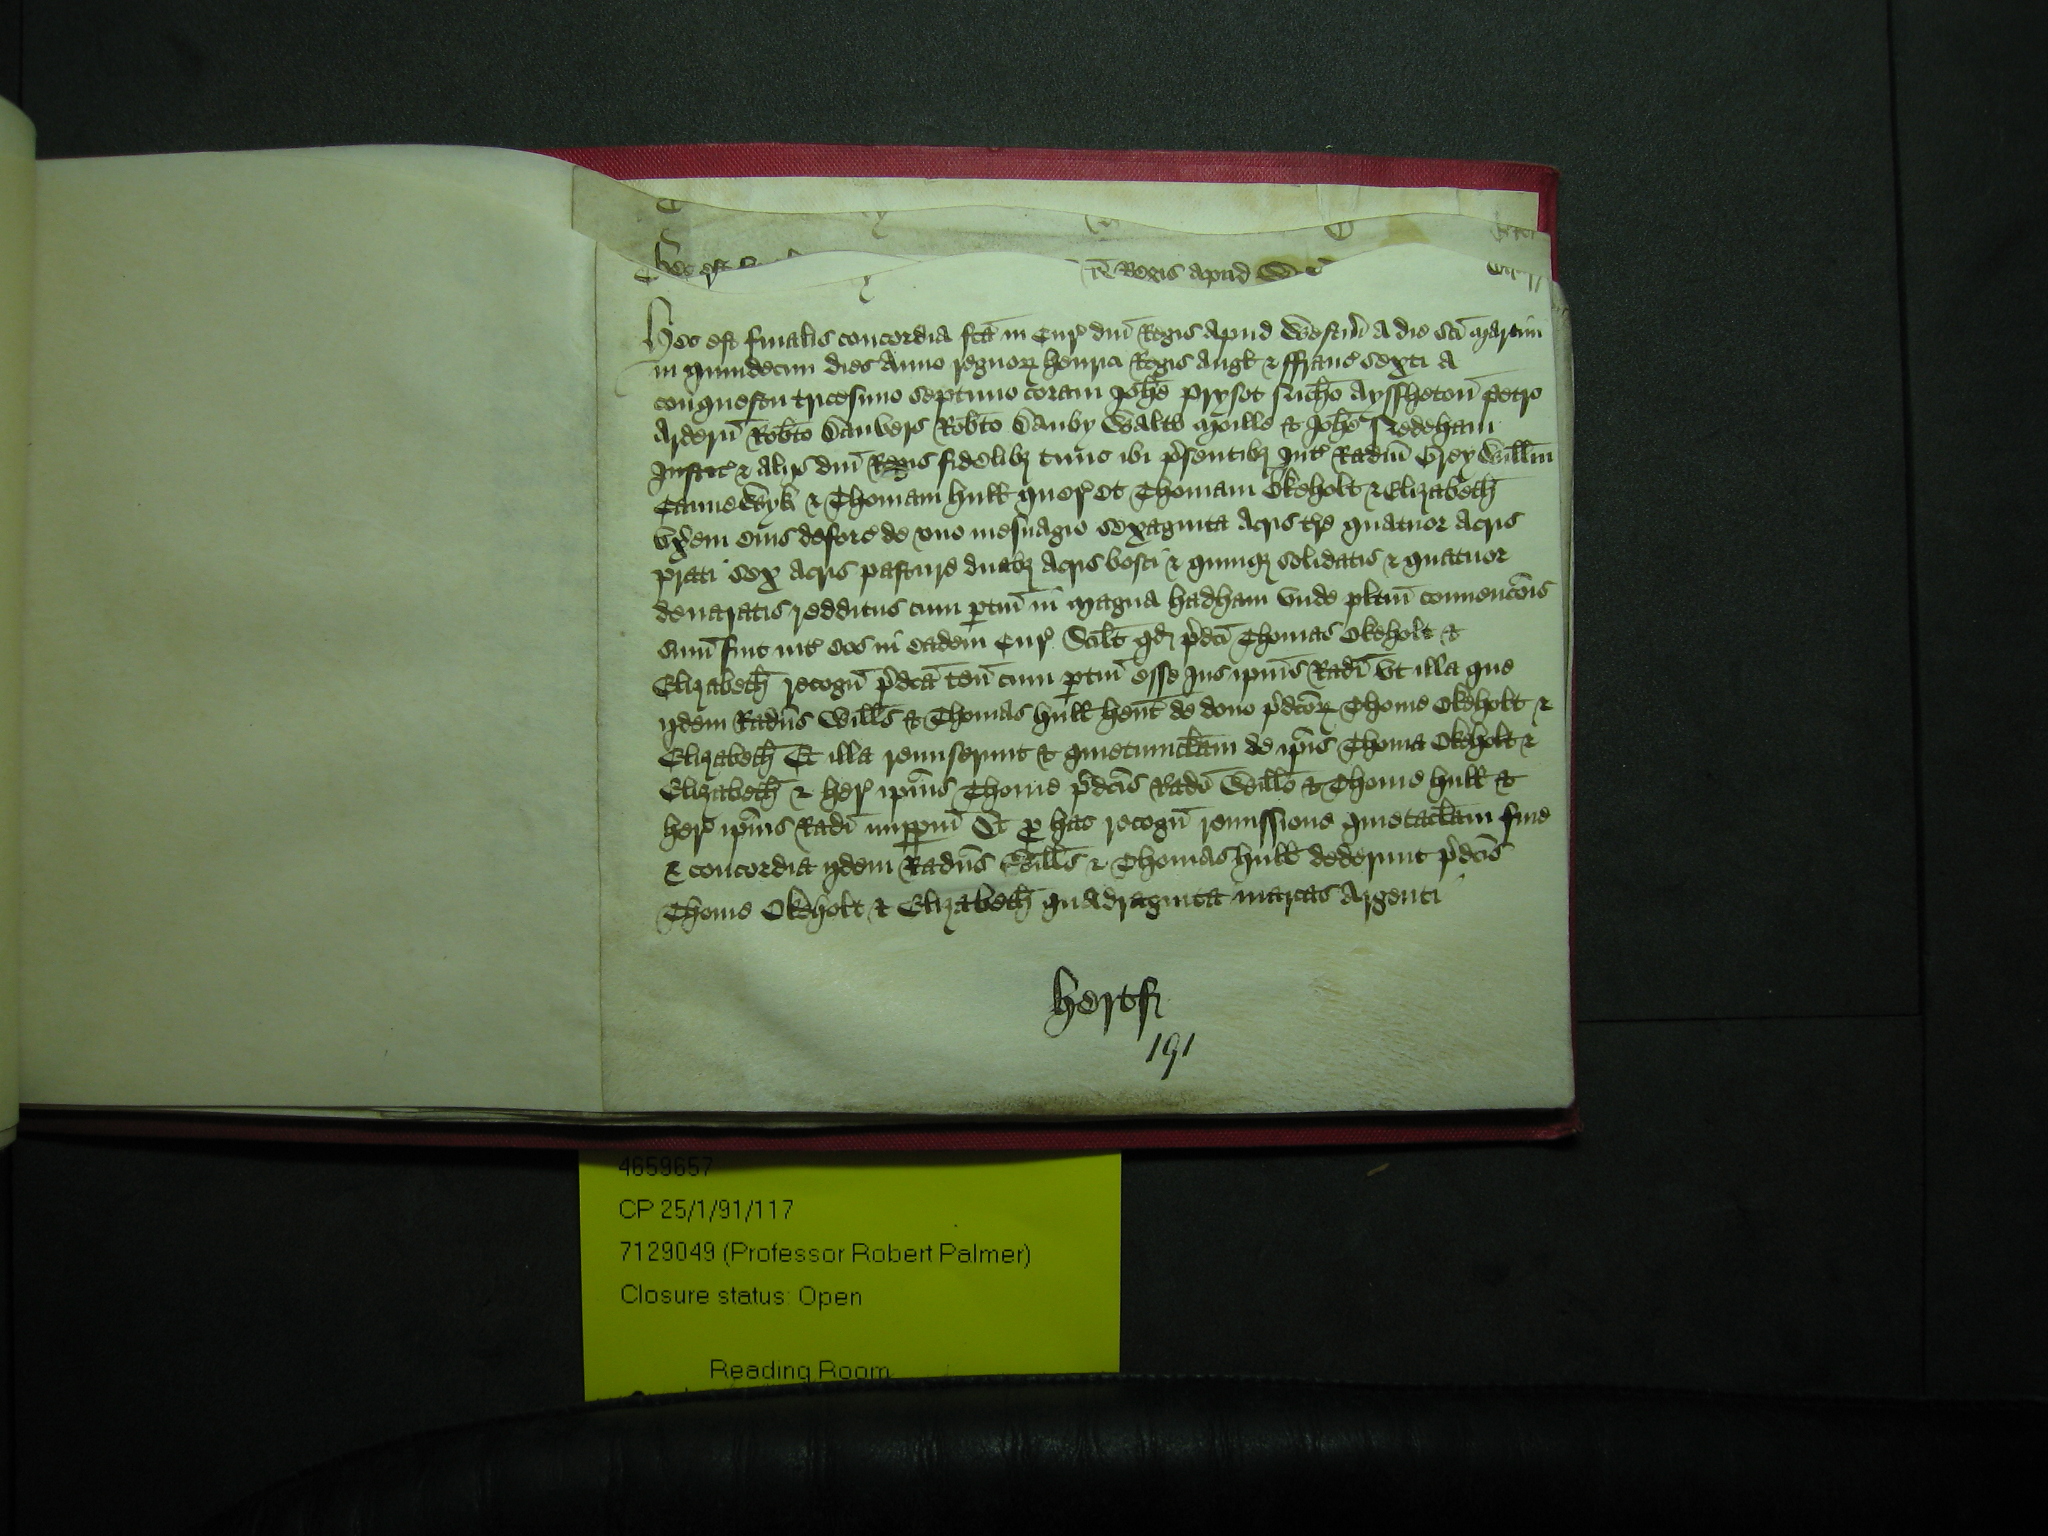 Hec est finalis concordia fcā in Cur' dnī Regis apud Westm' a die Scī Martini
in quindecim dies Anno regnor' Henrici Regis Angl' & ffranc' sexti a
conquestu tricesimo septimo coram Johē Prysot Nichō Aysshetoñ Petro
Arderñ Rob̄to Danvers Rob̄to Danby Walt̄o Moille & Johē Nedeham
Justic' & aliis dnī Regis fidelibȝ tunc ibi p'sentibȝ Int' Radm̄ Grey Willm̄
Cannewyk & Thomam Hull quer' Et Thomam Okeholt & Elizabeth
Ux'em eius deforc' de uno mesuagio sexaginta acris t're quatuor acris
prati sex acris pasture duabȝ acris bosci & quinqȝ solidatis & quatuor
denaratis redditus cum ptiñ in Magna Hadham Unde plitm̄ convencōis
sum̄ fuit int' eos in eadem Cur' Scilt qd p'dcī Thomas Okeholt &
Elizabeth recogñ p'dcā teñ cum ptiñ esse Jus ip̄ius Radī Ut illa que
ijdem Radūs Wills & Thomas Hull hent de dono p'dcōr' Thome Okeholt &
Elizabeth Et illa remiserunt & quietumclam̄ de ip̄is Thoma Okeholt &
Elizabeth & her' ip̄ius Thome p'dcīs Radō Willō & Thome Hull &
her' ip̄ius Radī imppm̄ Et p has recogñ remissione quietaclam̄ fine
& concordia ijdem Radūs Wills & Thomas Hull dederunt p'dcīs
Thome Okeholt & Elizabeth quadraginta marcas argenti
Hertf'
191
4659657
CP 25/1/91/117
7129049 (Professor Robert Palmer)
Closure status: Open
Reading Room